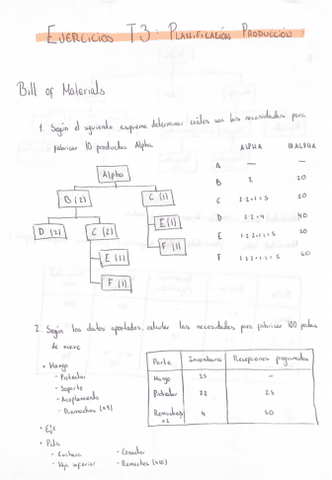 EJERCICIOS T3: PLANIFICACIÓN PRODUCCIÓN
Bill of Materials
1. Según el siguiente esquema determinar cuáles son las necesidades para
fabricar 10 productos Alpha.
ALPHA 10 ALPHA
Alpha
B (2) C (1)
D (2) C (2) E (1)
E (1) F (1)
F (1)
A — —
B 2 20
C 2·2+1=5 50
D 2·2=4 40
E 50
F 50
2. Según los datos aportados, calcular las necesidades para fabricar 100 palas
de nieve.
• Mango
- Soporte
- Acoplamiento
- Remaches
• Eje
• Pala
- Cuchara
- Hoja inferior - Remaches (x10)
Parte Inventario Recepciones programadas
Mango 25 —
22 25
Remaches 4 50